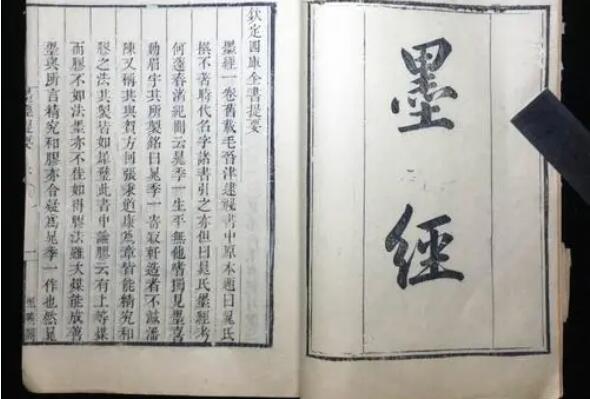 墨
經
欽定四庫全書提要
墨經一卷舊載毛晉津逮祕書中原本題曰晁氏
撰不著時代名字諸書引之亦但曰晁氏墨經考
何薳春渚紀聞云晁季一生平無他嗜獨見墨喜
動眉宇其所製銘曰晁季一寄寂軒造者不減潘
陳又稱其與賀方回張秉道康為章皆能精究和
膠之法其製皆如犀璧此書中論膠云有上等煤
而膠不如法墨亦不佳如得膠法雖次煤能成善
墨與所言精究和膠亦合疑爲晁季一作也然晁
墨經提要
一